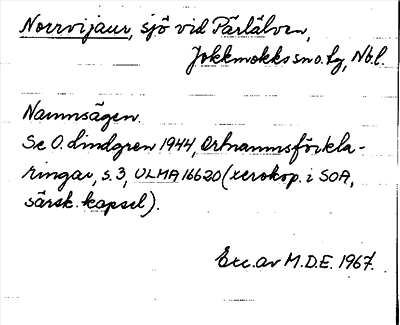 Norrvijaur, sjö vid Pärlälven,
Jokkmokks sn o. lg, Nbl.
Namnsägen.
Se O. Lindgren 1944, Ortnamnsförkla-
ringar, s. 3, ULMA 16620 (xerokop. i SOA,
särsk. kapsel).
Exc. av M.D.E. 1967.